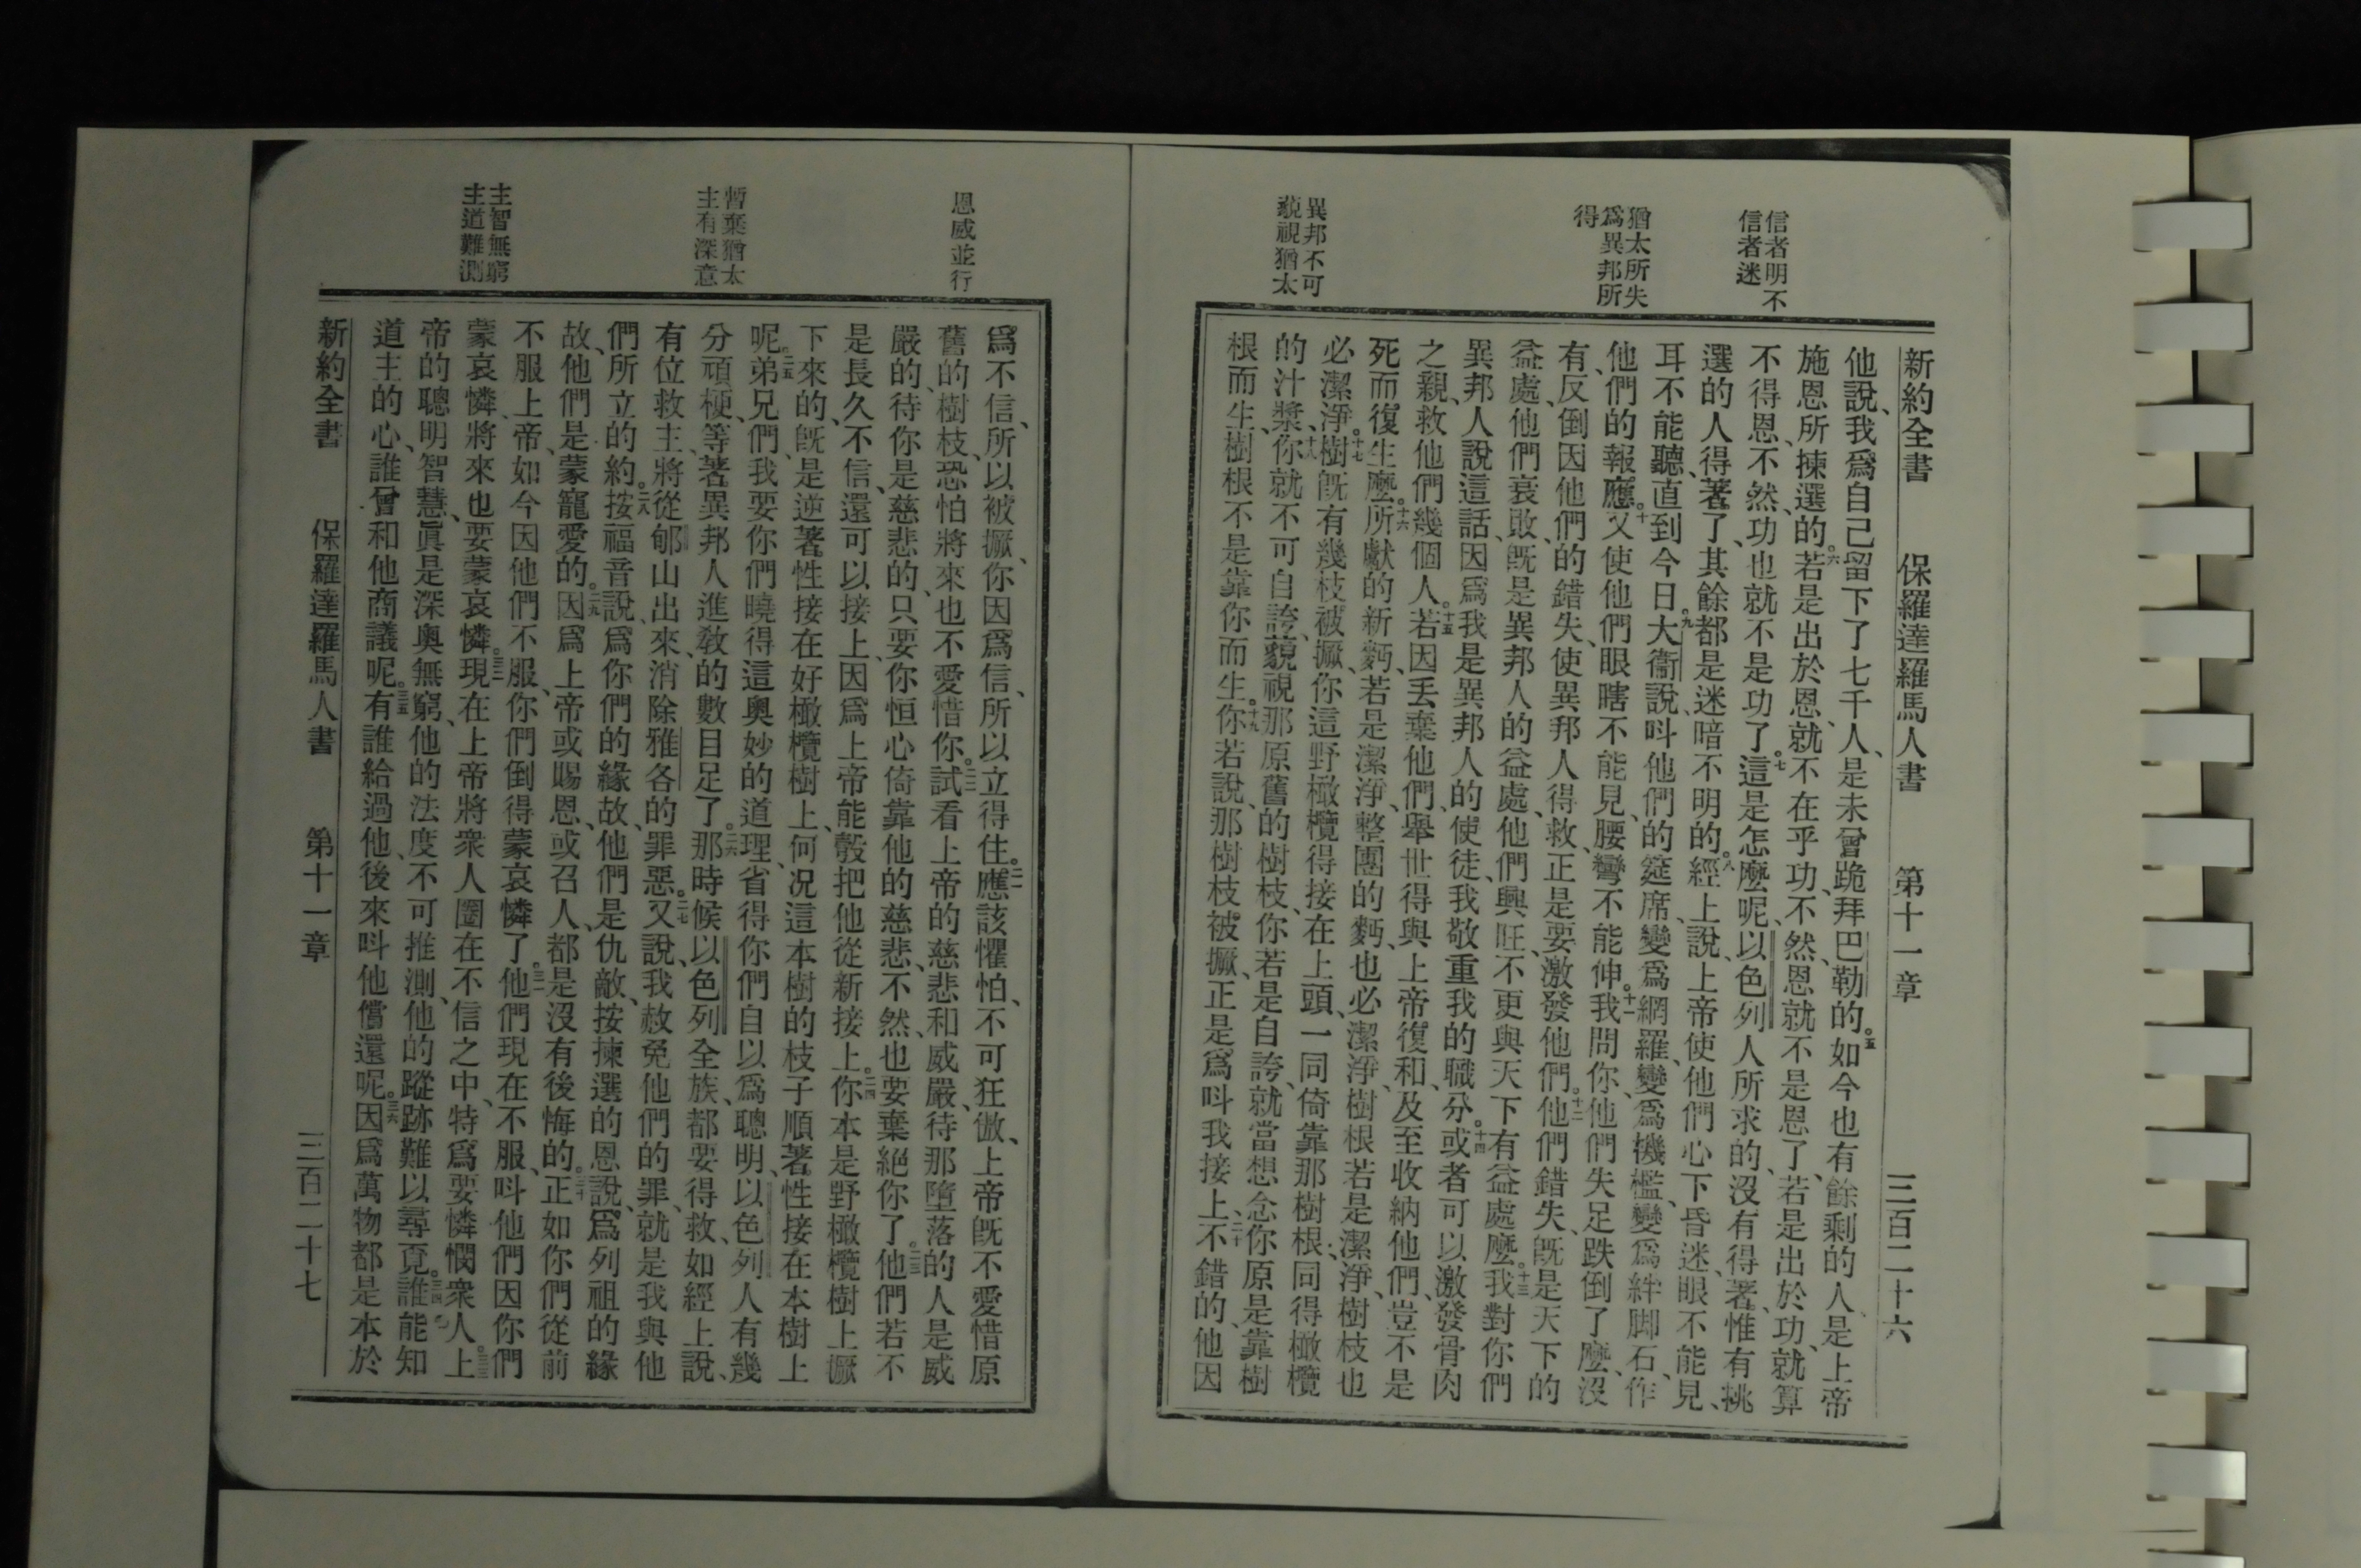 信者明不
信者迷
猶太所失
爲異邦所
得
異邦不可
藐視猶太
新約全書 保羅達羅馬人書 第十一章 三百二十六
他說、我爲自己留下了七千人、是未曾跪拜巴勒的。五如今也有餘剩的人、是上帝
施恩所揀選的。六若是出於恩、就不在乎功、不然、恩就不是恩了、若是出於功、就算
不得恩、不然、功也就不是功了。七這是怎麽呢、以色列人所求的、沒有得著、惟有挑
選的人得著了、其餘都是迷暗不明的。八經上說、上帝使他們心下昏迷、眼不能見、
耳不能聽、直到今日。九大衞說、呌他們的筵席、變爲網羅、變爲機檻、變爲絆脚石、作
他們的報應。十又使他們眼瞎不能見、腰彎不能伸。十一我問你、他們失足跌倒了麽、沒
有、反倒因他們的錯失、使異邦人得救、正是要激發他們。十二他們錯失、旣是天下的
益處、他們衰敗、旣是異邦人的益處、他們興旺、不更與天下有益處麽。十三我對你們
異邦人說這話、因爲我是異邦人的使徒、我敬重我的職分。十四或者可以激發骨肉
之親、救他們幾個人。十五若因丢棄他們、舉世得與上帝復和、及至收納他們、豈不是
死而復生麽。十六所獻的新麪、若是潔淨、整團的麪、也必潔淨、樹根若是潔淨、樹枝也
必潔淨。十七樹旣有幾枝被撅、你這野橄欖得接在上頭、一同倚靠那樹根、同得橄欖
的汁漿、十八你就不可自誇、藐視那原舊的樹枝、你若是自誇、就當想念你原是靠樹
根而生、樹根不是靠你而生。十九你若說、那樹枝被撅、正是爲呌我接上、二十不錯的、他因
恩威並行
暫棄猶太
主有深意
主智無窮
主道難測
爲不信、所以被撅、你因爲信、所以立得住。二一應該懼怕、不可狂傲、上帝旣不愛惜原
舊的樹枝、恐怕將來也不愛惜你。二二試看上帝的慈悲和威嚴、待那墮落的人是威
嚴的、待你是慈悲的、只要你恒心倚靠他的慈悲、不然、也要棄絕你了。二三他們若不
是長久不信、還可以接上、因爲上帝能彀把他從新接上。二四你本是野橄欖樹上撅
下來的、旣是逆著性接在好橄欖樹上、何况這本樹的枝子順著性接在本樹上
呢。二五弟兄們、我要你們曉得這奧妙的道理、省得你們自以爲聰明、以色列人有幾
分頑梗、等著異邦人進敎的數目足了。二六那時候以色列全族、都要得救、如經上說、
有位救主、將從郇山出來、消除雅各的罪惡。二七又說、我赦免他們的罪、就是我與他
們所立的約。二八按福音說、爲你們的緣故、他們是仇敵、按揀選的恩說、爲列祖的緣
故、他們是蒙寵愛的。二九因爲上帝或賜恩、或召人、都是沒有後悔的。三十正如你們從前
不服上帝、如今因他們不服、你們倒得蒙哀憐了。三一他們現在不服、呌他們因你們
蒙哀憐、將來也要蒙哀憐。三二現在上帝將衆人圈在不信之中、特爲要憐憫衆人。三三上
帝的聰明智慧、眞是深奧無窮、他的法度不可推測、他的蹤跡難以尋覓。三四誰能知
道主的心、誰曾和他商議呢。三五有誰給過他、後來呌他償還呢。三六因爲萬物都是本於
新約全書 保羅達羅馬人書 第十一章 三百二十七